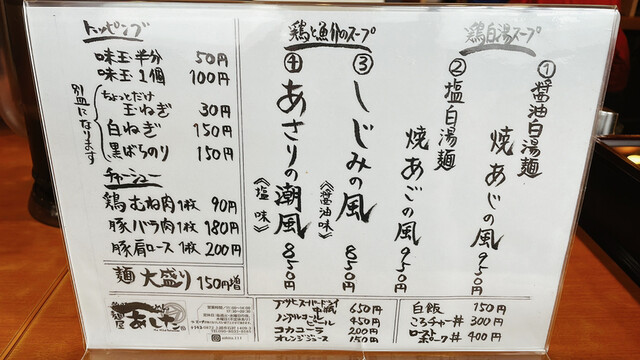 鶏白湯スープ
① 醤油白湯麺
焼あじの風 950円
② 塩白湯麺
焼あごの風 950円
鶏と魚介のスープ
③ しじみの風 850円
《醤油味》
④ あさりの潮風 850円
《塩味》
トッピング
味玉半分 50円
味玉1個 100円
ちょっとだけ
玉ねぎ 30円
白ねぎ 150円
黒ばらのり 150円
別皿になります
チャーシュー
鶏むね肉1枚 90円
豚バラ肉1枚 180円
豚肩ロース1枚 200円
麺大盛り 150円増
麺屋
アサヒスーパードライ 中瓶 650円
ノンアルコール 450円
コカコーラ 200円
オレンジジュース 150円
白飯 150円
ころチャー丼 300円
ロースト
ポーク丼 400円